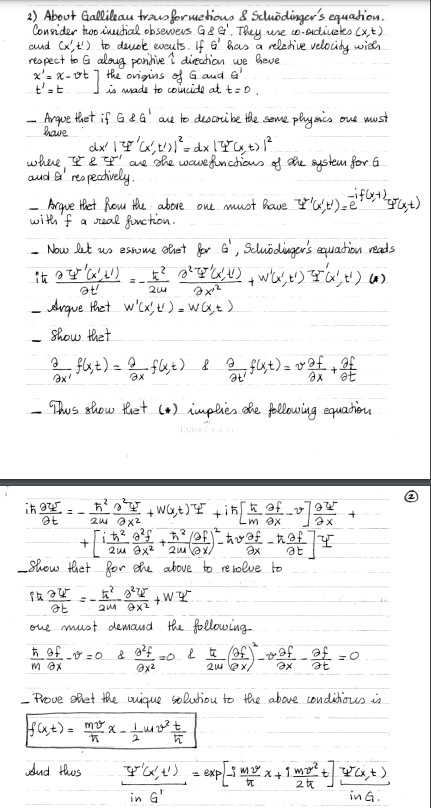 2) About Gallileau transformations & Schödinger's equation.
Consider two inertial observers G & G'. They use co-ordinates (x,t)
and (x',t') to denote events. If G' has a relative velocity with
respect to G along positive î direction we have
x' = x - vt ] the origins of G and G'
t' = t ] is made to coincide at t = 0.
- Argue that if G & G' are to describe the same physics one must
have
dx' |Ψ'(x',t')|² = dx |Ψ(x,t)|²
where Ψ & Ψ' are the wavefunctions of the system for G
and G' respectively.
- Argue that from the above one must have Ψ'(x',t') = e^{-if(x,t)} Ψ(x,t)
with f a real function.
- Now let us assume that for G', Schödinger's equation reads
iħ ∂Ψ'(x',t')/∂t' = -ħ²/2m ∂²Ψ'(x',t')/∂x'² + W'(x',t') Ψ'(x',t') (*)
- Argue that W'(x',t') = W(x,t)
- Show that
∂/∂x' f(x,t) = ∂/∂x f(x,t) & ∂/∂t' f(x,t) = v ∂f/∂x + ∂f/∂t
- Thus show that (*) implies the following equation
②
iħ ∂Ψ/∂t = -ħ²/2m ∂²Ψ/∂x² + W(x,t)Ψ + iħ[ħ/m ∂f/∂x - v] ∂Ψ/∂x +
+ [i ħ²/2m ∂²f/∂x² + ħ²/2m (∂f/∂x)² - ħv ∂f/∂x - ħ ∂f/∂t] Ψ
- Show that for the above to resolve to
iħ ∂Ψ/∂t = -ħ²/2m ∂²Ψ/∂x² + WΨ
one must demand the following
ħ/m ∂f/∂x - v = 0 & ∂²f/∂x² = 0 & ħ/2m (∂f/∂x)² - v ∂f/∂x - ∂f/∂t = 0
- Prove that the unique solution to the above conditions is
f(x,t) = mv/ħ x - 1/2 mv² t/ħ
And thus Ψ'(x',t') = exp[-i mv/ħ x + i mv²/2ħ t] Ψ(x,t)
in G' in G.